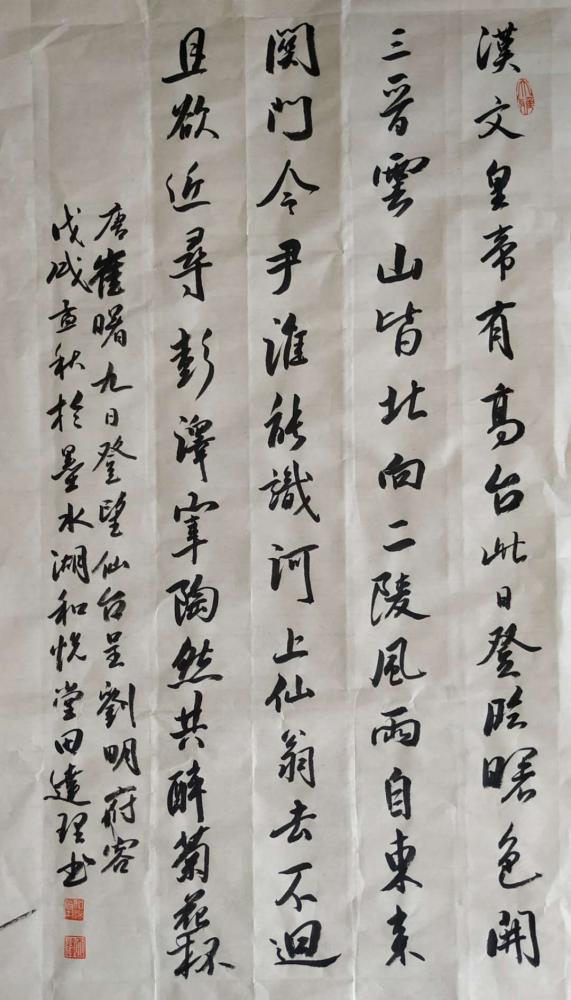 漢文皇帝有高台此日登臨曙色開
三晉雲山皆北向二陵風雨自東來
関門令尹誰能識河上仙翁去不迴
且欲近尋彭澤宰陶然共醉菊花杯
唐崔曙九日登望仙台呈劉明府容
戊戌孟秋於墨水湖和悅堂田達理书